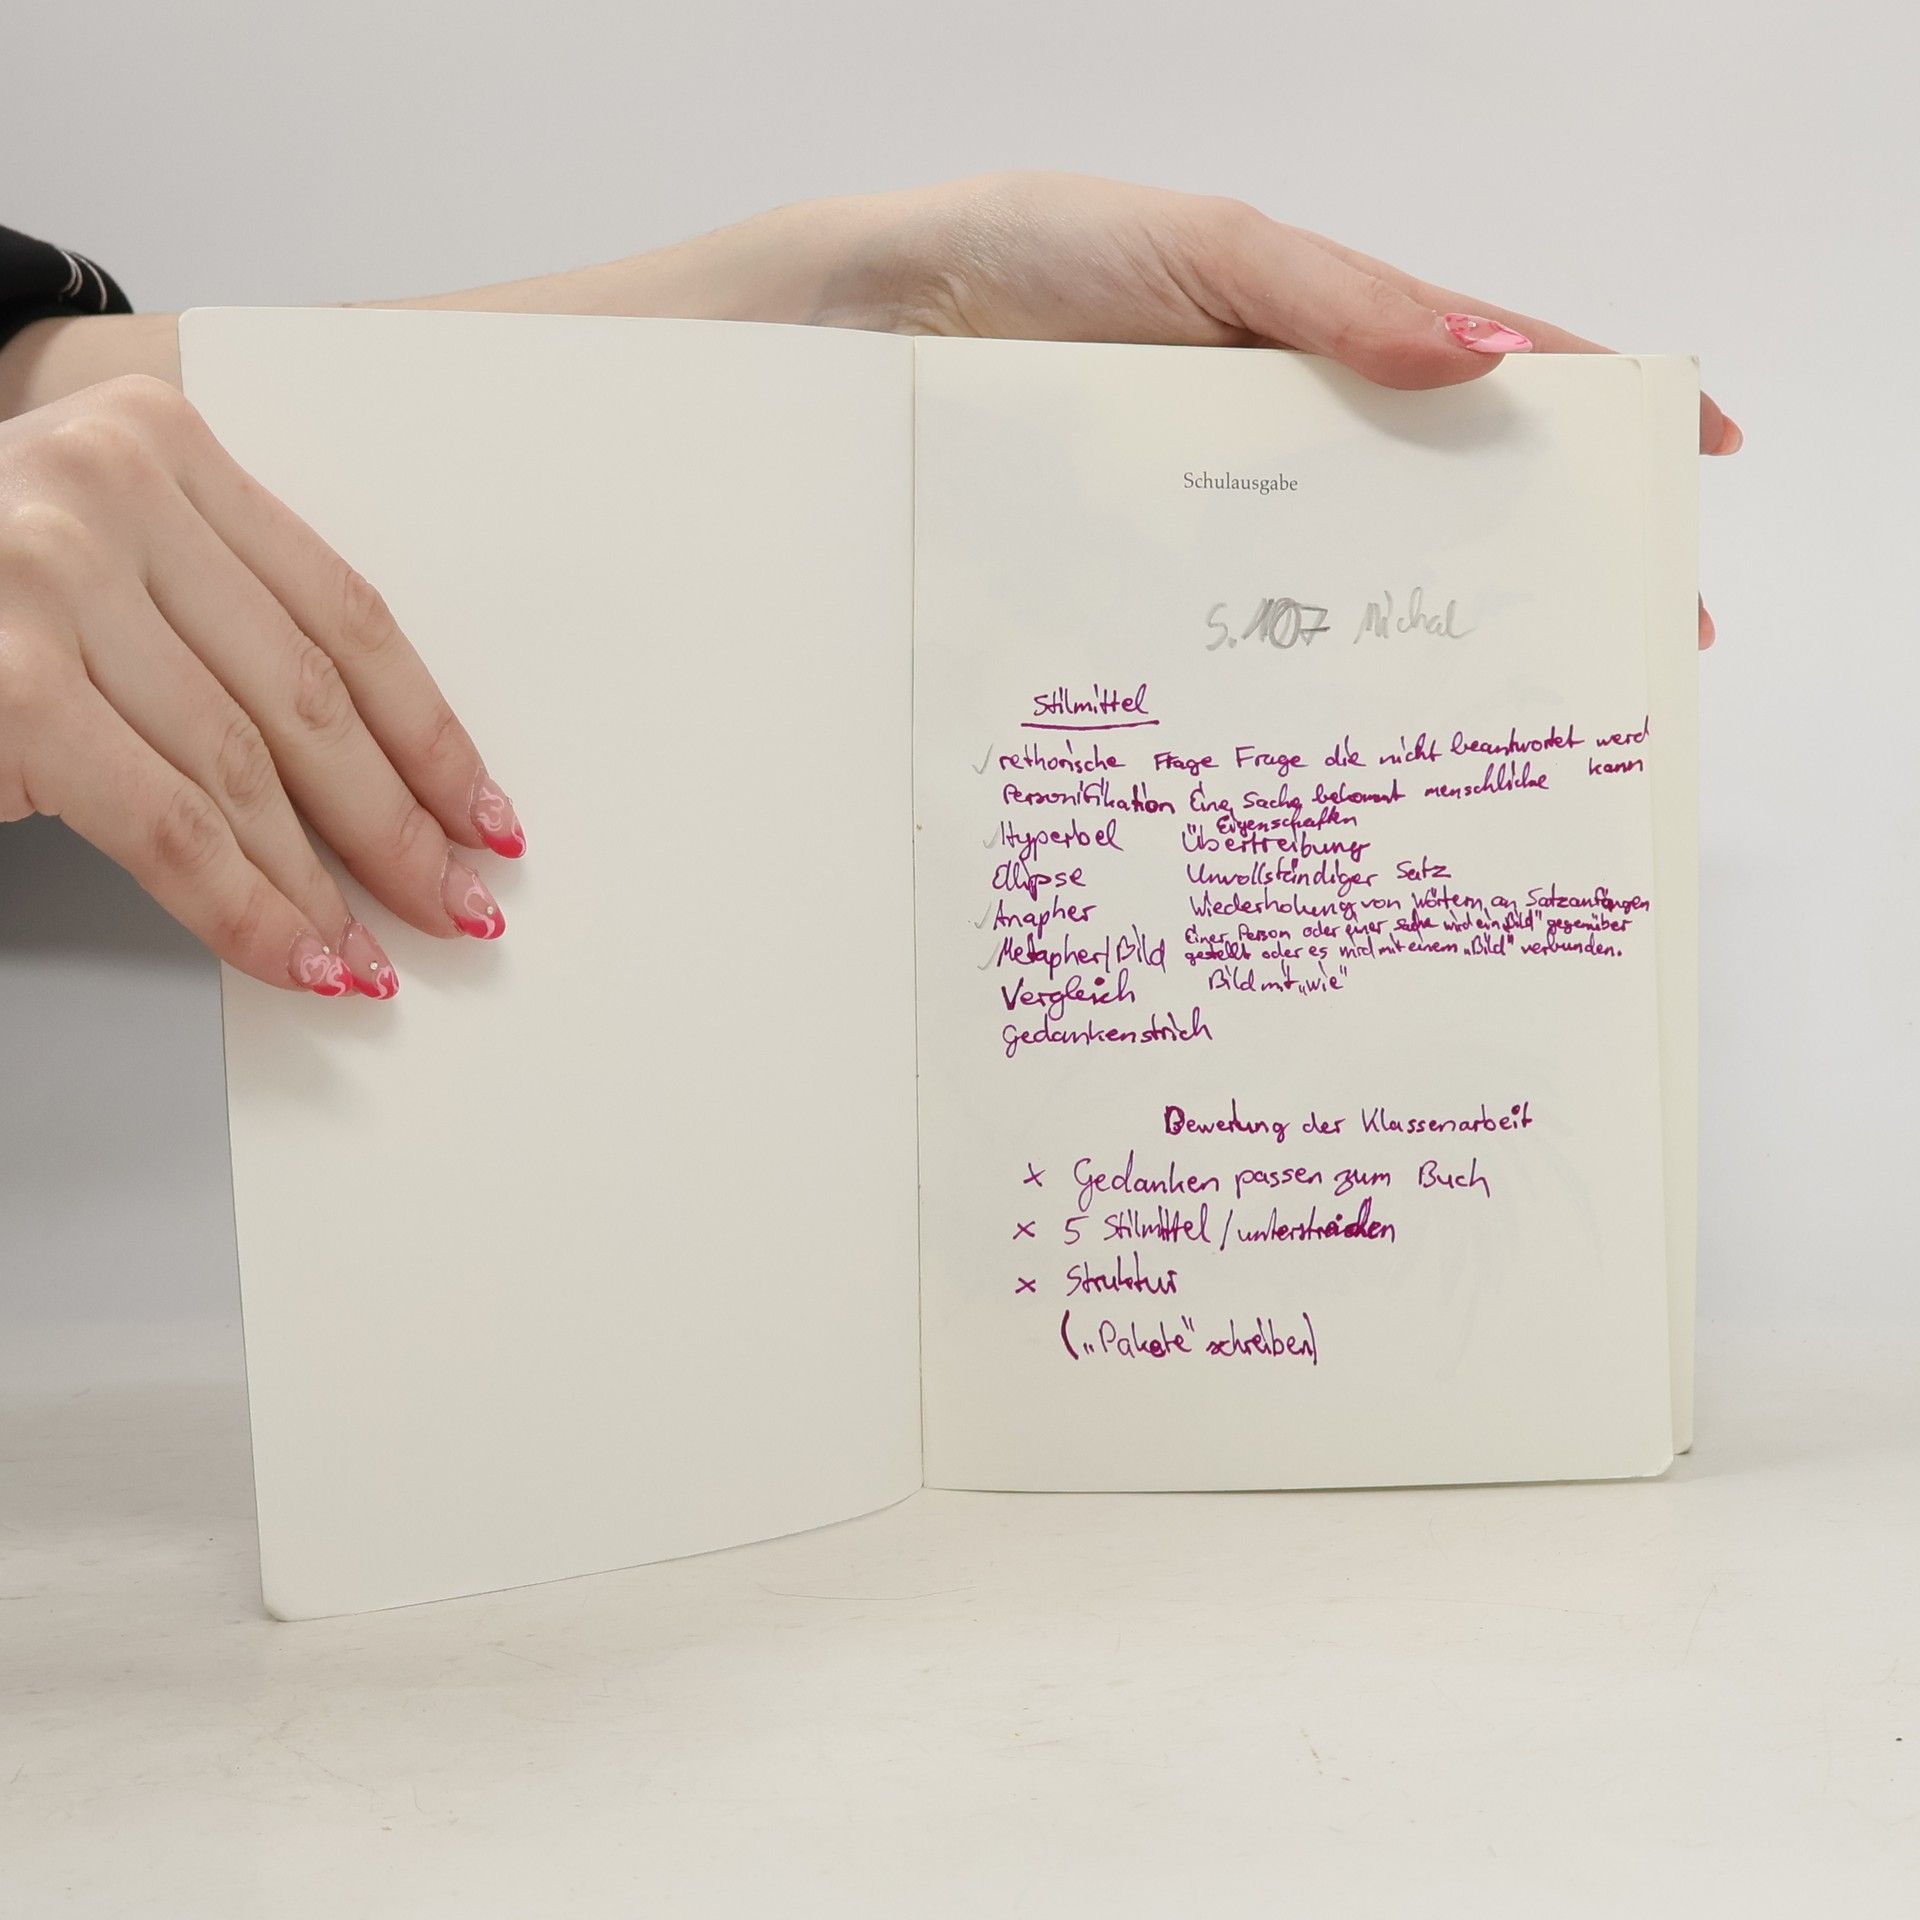 Schulausgabe
S. 107 Michal
Stilmittel
rethorische Frage Frage die nicht beantwortet werd
kann
Personifikation Eine Sache bekommt menschliche
Eigenschaften
Hyperbel Übertreibung
Ellipse Unvollständiger Satz
Anapher Wiederholung von Wörtern an Satzanfängen
Metapher/Bild Einer Person oder einer Sache wird ein „Bild" gegenüber
gestellt oder es wird mit einem „Bild" verbunden.
Vergleich Bild mit „wie"
Gedankenstrich
Bewertung der Klassenarbeit
x Gedanken passen zum Buch
x 5 Stilmittel / unterstreichen
x Struktur
(„Pakete" schreiben)